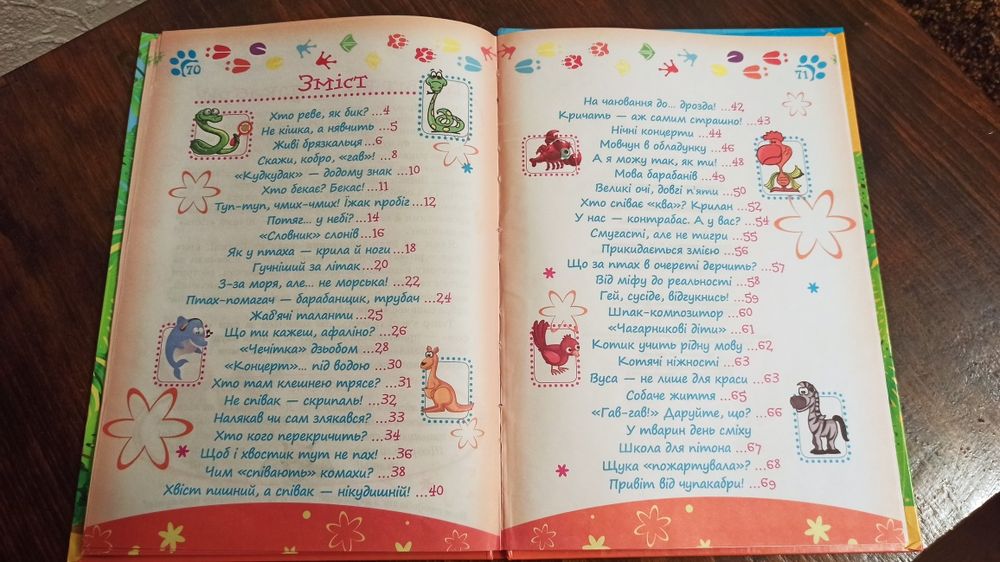 70
Зміст
Хто реве, як бик? ...4
Не кішка, а нявчить ...5
Живі брязкальця ...6
Скажи, кобро, «гав»! ...8
«Кудкудак» — додому знак ...10
Хто бекає? Бекас! ...11
Туп-туп, чмих-чмих! Їжак пробіг ...12
Потяг... у небі? ...14
«Словник» слонів ...16
Як у птаха — крила й ноги ...18
Гучніший за літак ...20
З-за моря, але... не морська! ...22
Птах-помагач — барабанщик, трубач ...24
Жаб'ячі таланти ...25
Що ти кажеш, афаліно? ...26
«Чечітка» дзьобом ...28
«Концерт»... під водою ...30
Хто там клешнею трясе? ...31
Не співак — скрипаль! ...32
Налякав чи сам злякався? ...33
Хто кого перекричить? ...34
Щоб і хвостик тут не пах! ...36
Чим «співають» комахи? ...38
Хвіст пишний, а співак — нікудишній! ...40
71
На чаювання до... дрозда! ...42
Кричать — аж самим страшно! ...43
Нічні концерти ...44
Мовчун в обладунку ...46
А я можу так, як ти! ...48
Мова барабанів ...49
Великі очі, довгі п'яти ...50
Хто співає «ква»? Крилан ...52
У нас — контрабас. А у вас? ...54
Смугасті, але не тигри ...55
Прикидається змією ...56
Що за птах в очереті дерчить? ...57
Від міфу до реальності ...58
Гей, сусіде, відгукнись! ...59
Шпак-композитор ...60
«Чагарникові діти» ...61
Котик учить рідну мову ...62
Котячі ніжності ...63
Вуса — не лише для краси ...63
Собаче життя ...65
«Гав-гав!» Даруйте, що? ...66
У тварин день сміху
Школа для пітона ...67
Щука «пожартувала»? ...68
Привіт від чупакабри! ...69